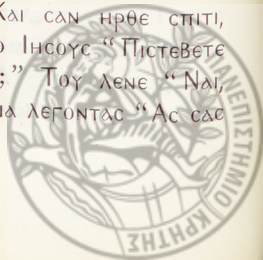 Και σαν ηρθε σπιτι,
ο Ιησους “Πιστεβετε
;” Του λενε “Ναι,
ια λεγοντας “Ας σας
ΠΑΝΕΠΙΣΤΗΜΙΟ ΚΡΗΤΗΣ